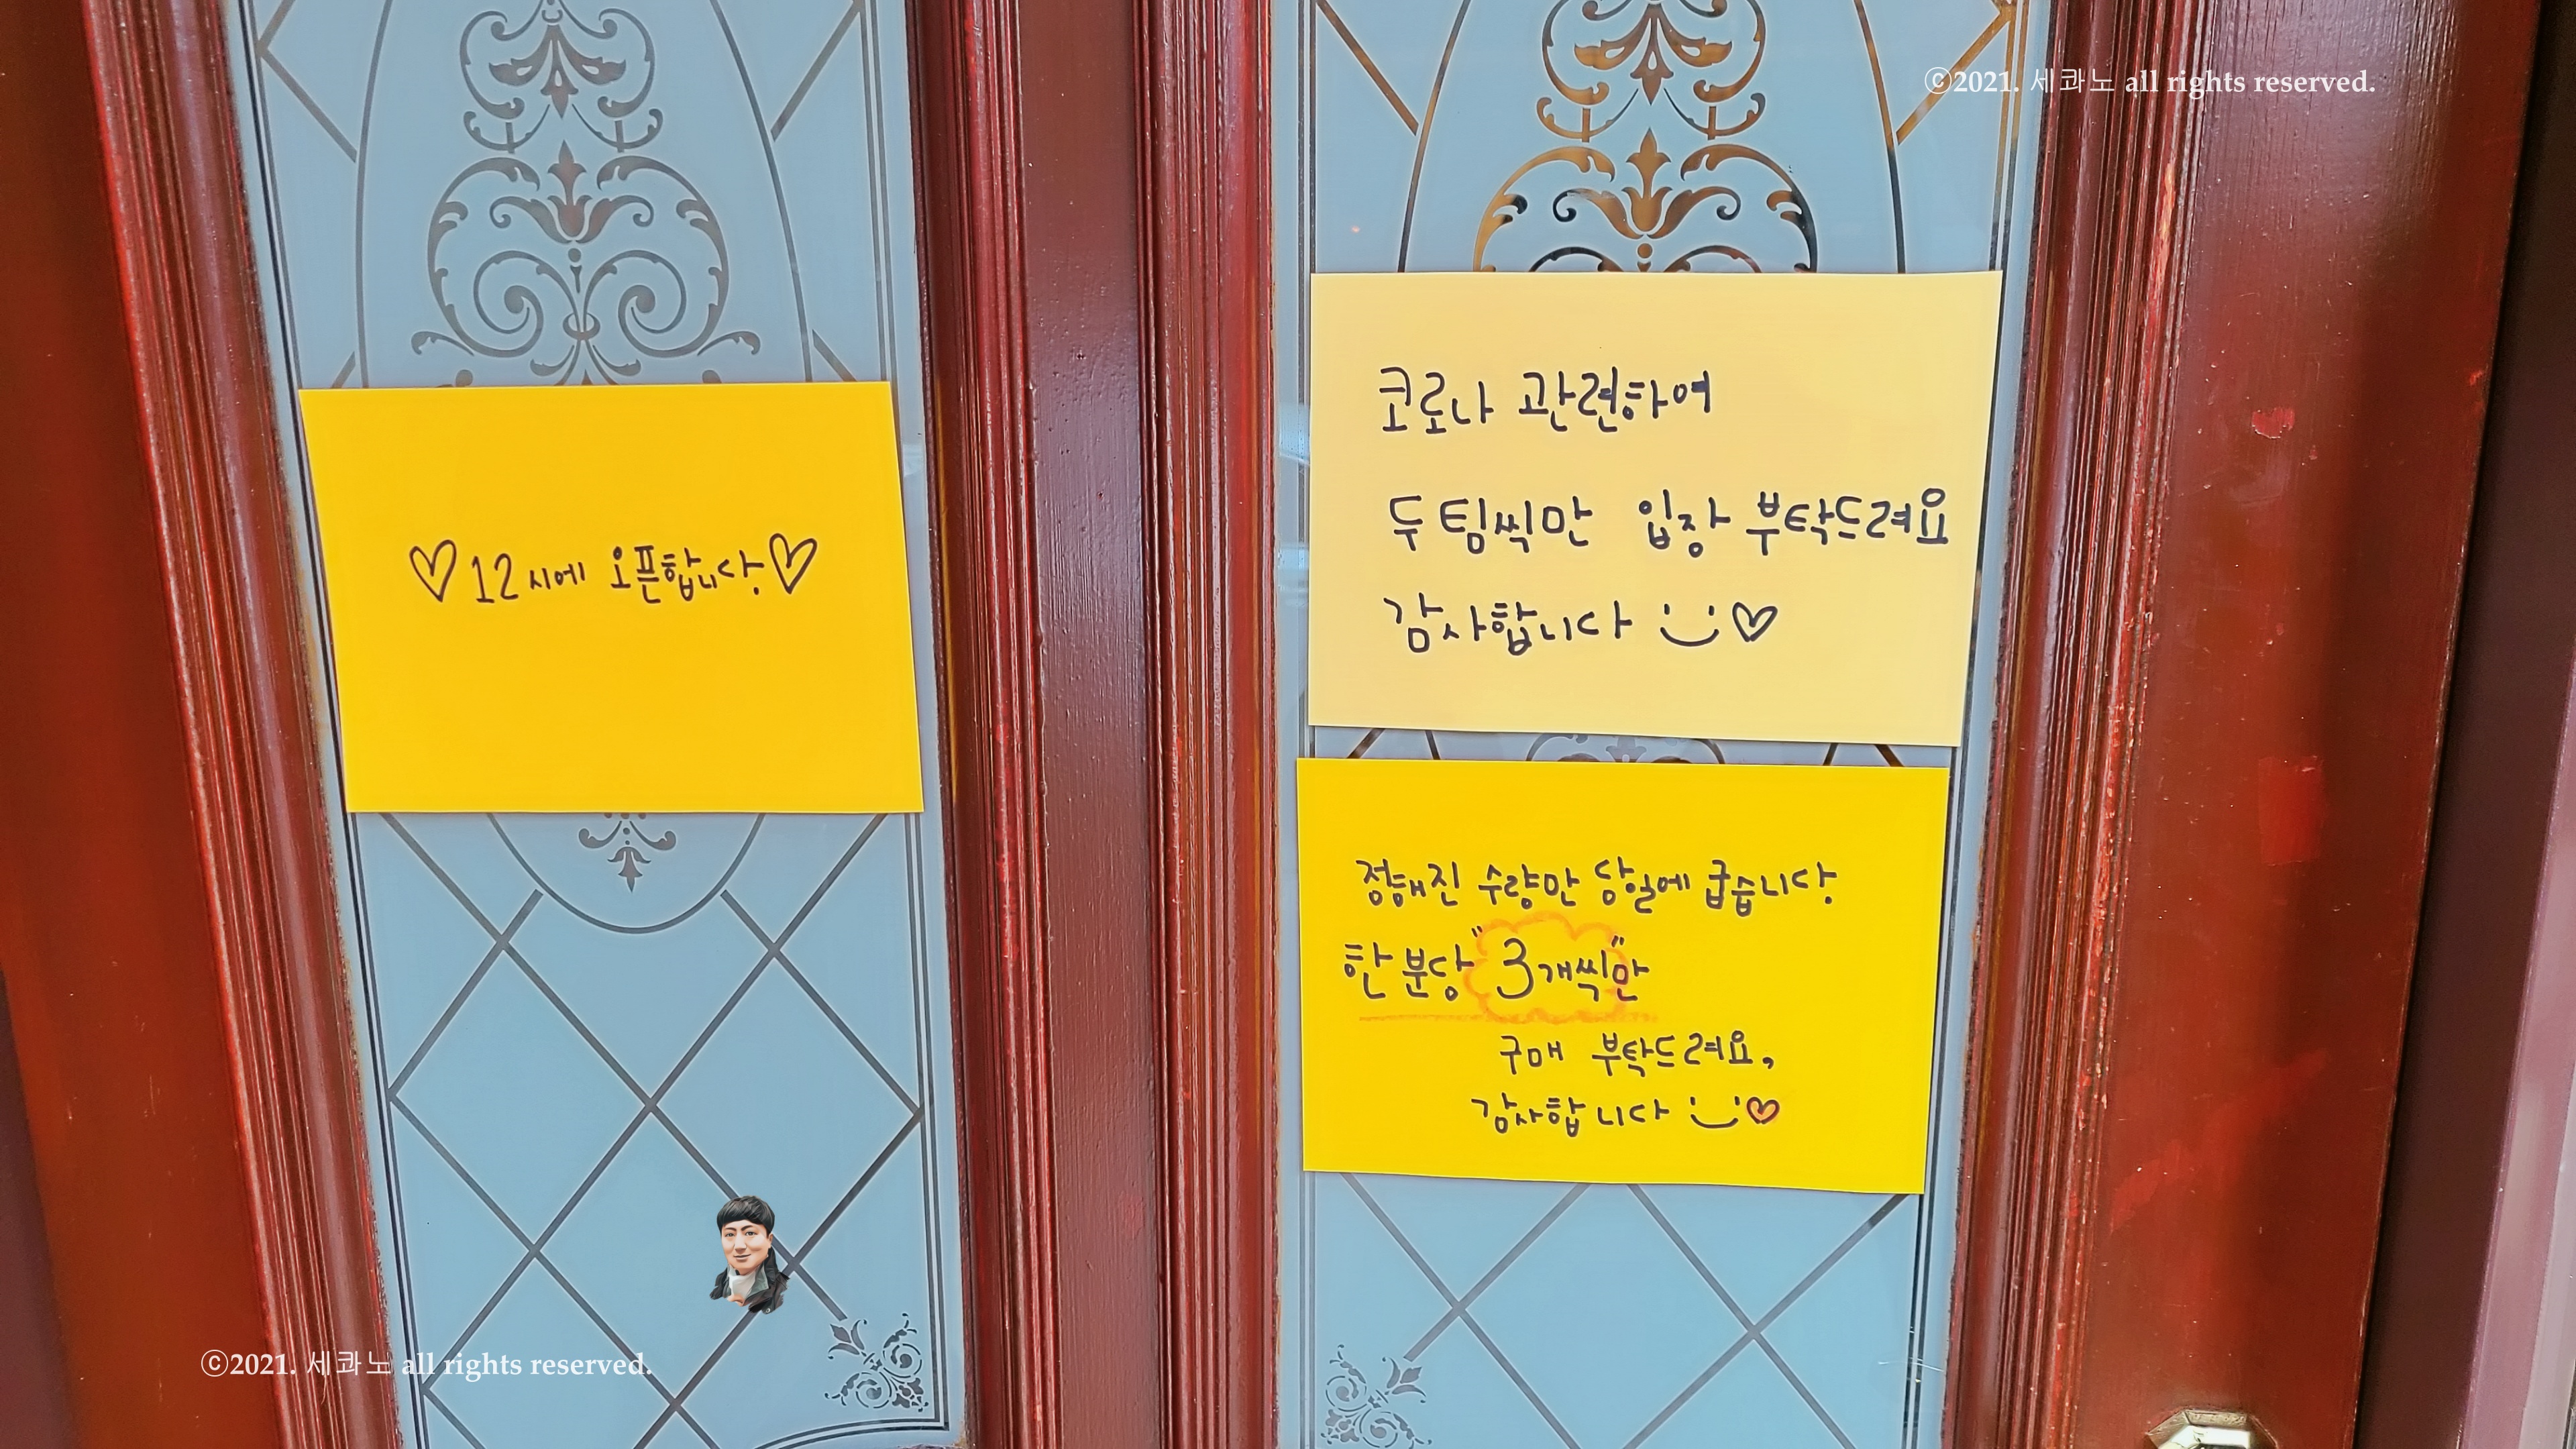 ⓒ2021. 세콰노 all rights reserved.
♡12시에 오픈합니다.♡
코로나 관련하여
두 팀씩만 입장 부탁드려요
감사합니다 ♡
정해진 수량만 당일에 굽습니다.
한 분당 "3개씩만"
구매 부탁드려요,
감사합니다 ♡
ⓒ2021. 세콰노 all rights reserved.